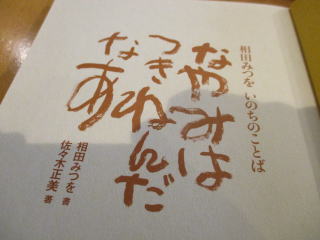 相田みつを いのちのことば
なやみは
つきねんだ
なあ
相田みつを 書
佐々木正美 著